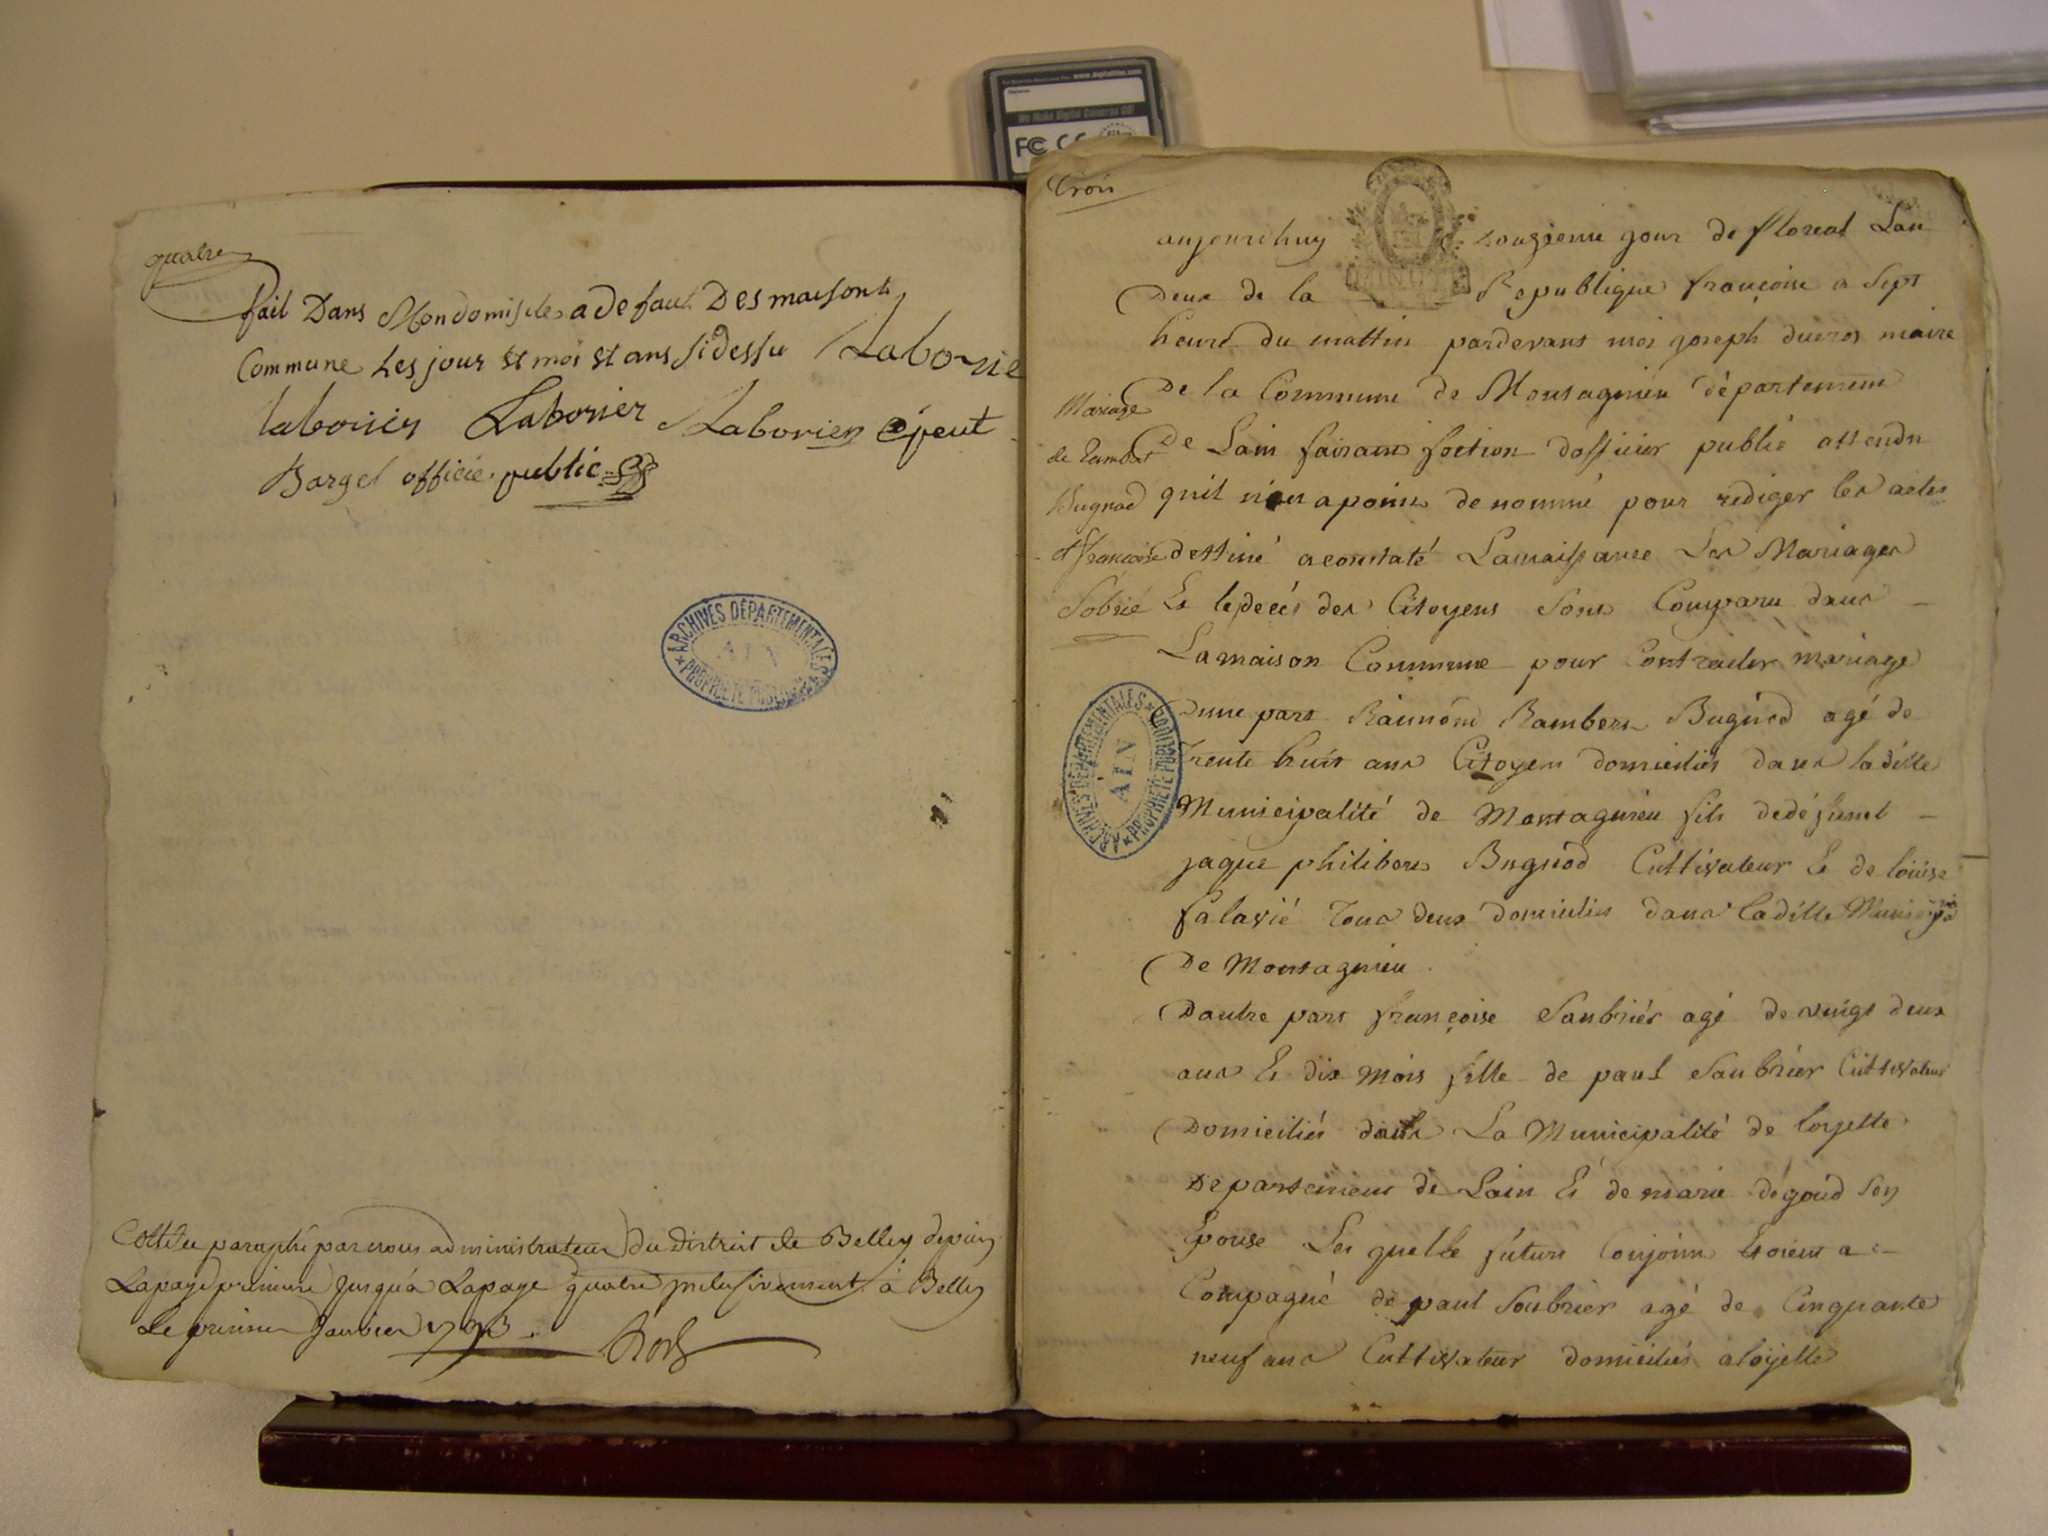 quatre
fait Dans Mondomisile a Defaut Des maisont
Commune Les jour et mois et ans sidessu Laborie
laborier Laborier Laborier épeut
Bargel officie public
ARCHIVES DÉPARTEMENTALES
AIN
PROPRIÉTÉ PUBLIQUE
Cotté et paraphé par nous administrateur du district de Belley depuis
Lapage premiere jusqu'a Lapage quatre inclusivement à Belley
Le premier Janvier 1793
We Make Digital Cameras Go!
FC
Trois
aujourdhuy douzieme jour de floreal Lan
Deux de la Republique françoise a Sept
heure du mattin pardevant moi joseph ducros maire
De la Commune de Montagnieu département
De Lain faisant foction dofficier public attendu
qu'il n'en a point de nommé pour rediger les actes
destiné a constaté Lanaissance Les Mariages
Et le decés des Citoyens Sont Comparu dans
Lamaison Commune pour Contracter mariage
Mariage
de Rambert
Bugnod
et françoise
Sobrié
Dune part Raimond Rambert Bugnod agé de
Trente huit ans Citoyen domiciliés dans ladille
Municipalité de Montagnieu fils dedéfunct
jaque philibert Bugnod Cultivateur Et de louise
falavié Tous deux domicilies dans ladille Municipa
De Montagnieu
Dautre part françoise Saubriér agé de vingt deux
ans Et dix mois fille de paul Saubriér Cultivateur
Domiciliés dans La Municipalité de loyette
Departement de Lain Et de marie dégoud Son
Epouse Les quelle futurs Conjoint Etoient a
Compagné de paul Soubrier agé de Cinquante
neuf ans Cultivateur domiciliés a loyette
ARCHIVES DÉPARTEMENTALES
AIN
PROPRIÉTÉ PUBLIQUE